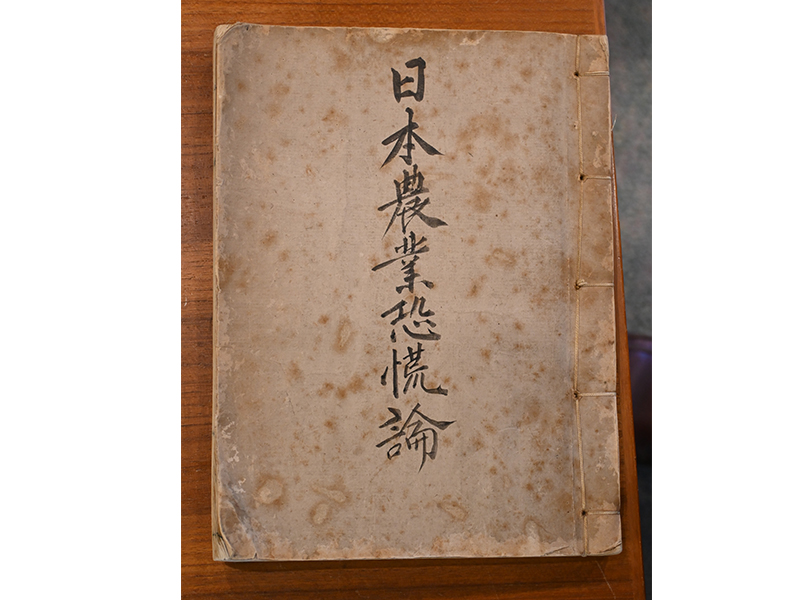 日本農業恐慌論